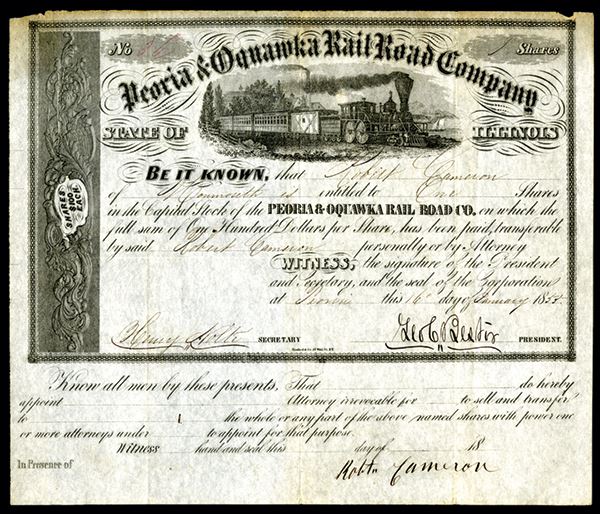 No 1 Shares
Peoria & Oquawka Rail Road Company
STATE OF ILLINOIS
BE IT KNOWN, that Robert Cameron
of Monmouth is entitled to One Shares
in the Capital Stock of the PEORIA & OQUAWKA RAIL ROAD CO. on which the
full sum of One Hundred Dollars per Share, has been paid, transferable
by said Robert Cameron personally or by Attorney
WITNESS, the signature of the President
and Secretary, and the seal of the Corporation
at Peoria this 16 day of January 185
Henry SECRETARY Geo C Bestor PRESIDENT.
SHARES
$100
EACH
Know all men by these presents. That do hereby
appoint Attorney irrevocable for to sell and transfer
to the whole or any part of the above named shares with power one
or more attorneys under to appoint for that purpose.
Witness hand and seal this day of 18
In Presence of
Robt Cameron